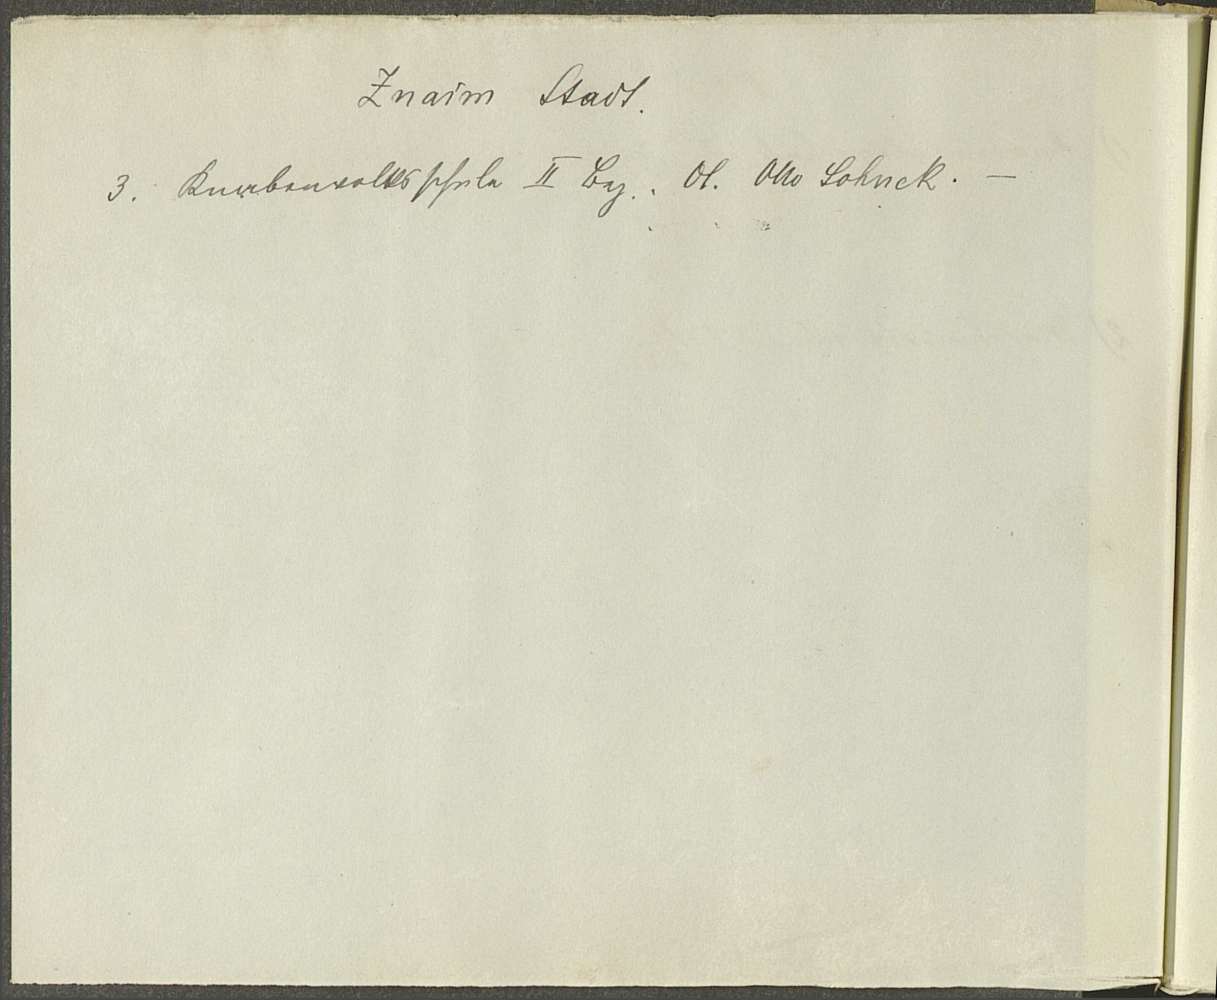 Znaim Stadt.
3. Knabenvolksschule II Bez. Ol. Otto Lohnek. —